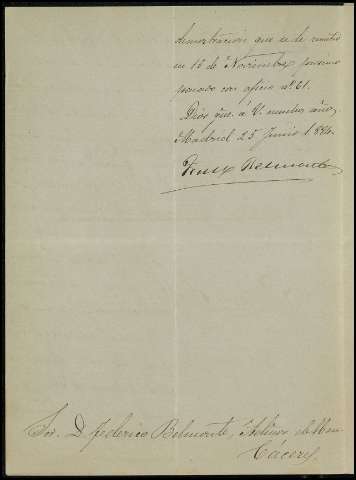 demostración que se le remitió
en 16 de Noviembre próximo
pasado con oficio nº 61.
Dios gue. á V. muchos años.
Madrid 25 Junio 1.884.
Belmonte
Sor. D. Federico Belmonte,
Cáceres.